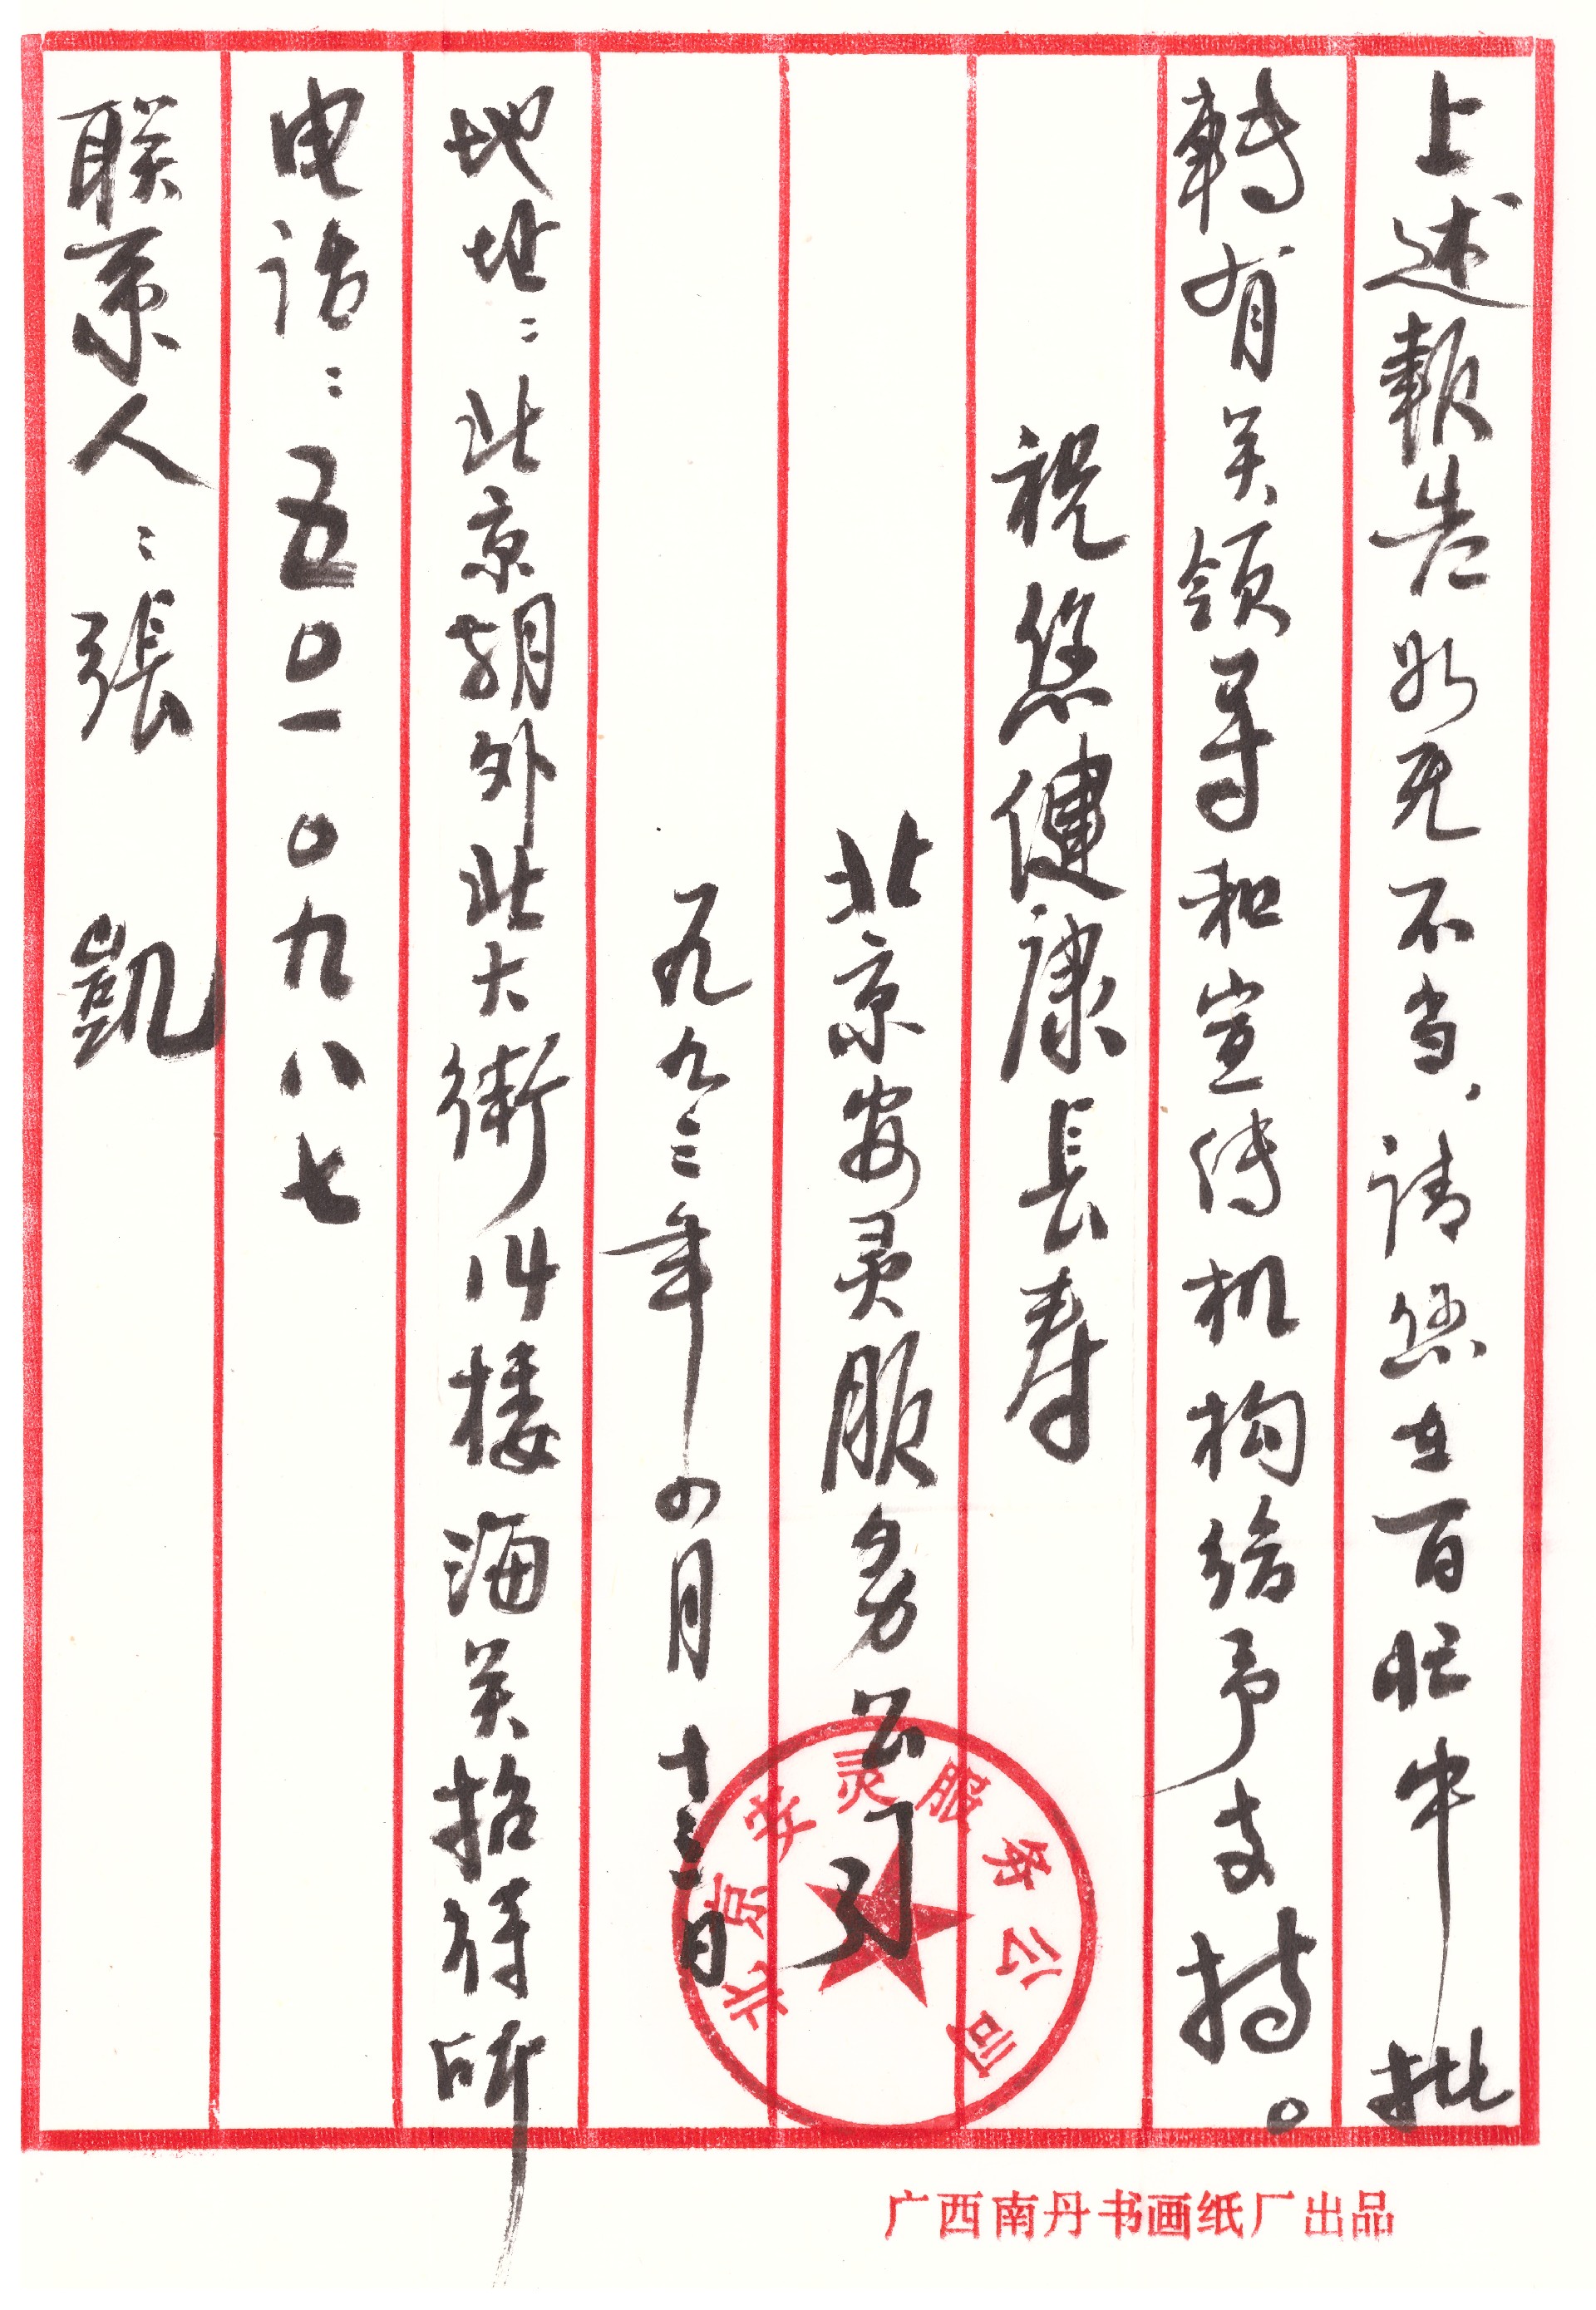 上述報告如无不当，请您在百忙中批
轉有关领导和宣传机构给予支持。
祝您健康長寿
北京安灵服务公司
一九九三年四月十三日
地址：北京朝外北大街14楼海关招待所
电话：五〇一〇九八七
联系人：張 凱
北京安灵服务公司
广西南丹书画纸厂出品